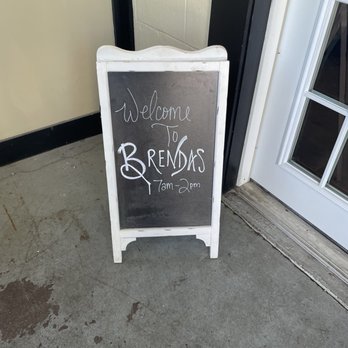 Welcome
To
BRENDAS
7am-2pm